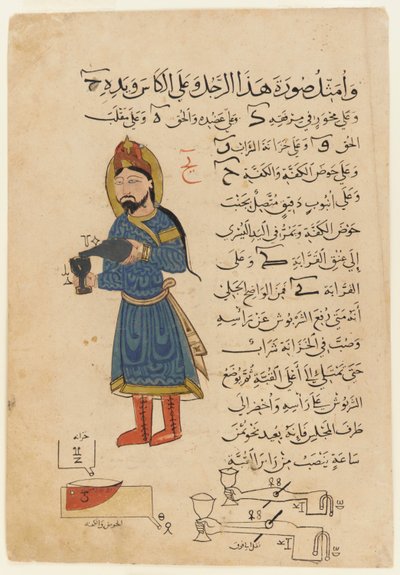 وأمثل صورة هذا الرجل وعلى الكاس ويده ح
وعلى محور في مرفقه ك وعلى عضده والحق ه وعلى مقلب
الحق و وعلى خزانة الشراب
وعلى حوض الكفة والكفة ح
وعلى أنبوب دقيق متصل بجنب
حوض الكفة ويمر في اليد اليسرى
إلى عنق القرابة وعلى
القرابة فمن الواضح الجلي
أنه متى رفع الشربوش عن راسه
وصب في الخزانة شراب
حتى يمتلئ إلى أعلى القبة ثم يوضع
الشربوش على راسه وأحضر إلى
طرف المجلس فإنه بعيد نحو من
ساعة ينصب من راس القبة
خزانة
الحوض والكفة